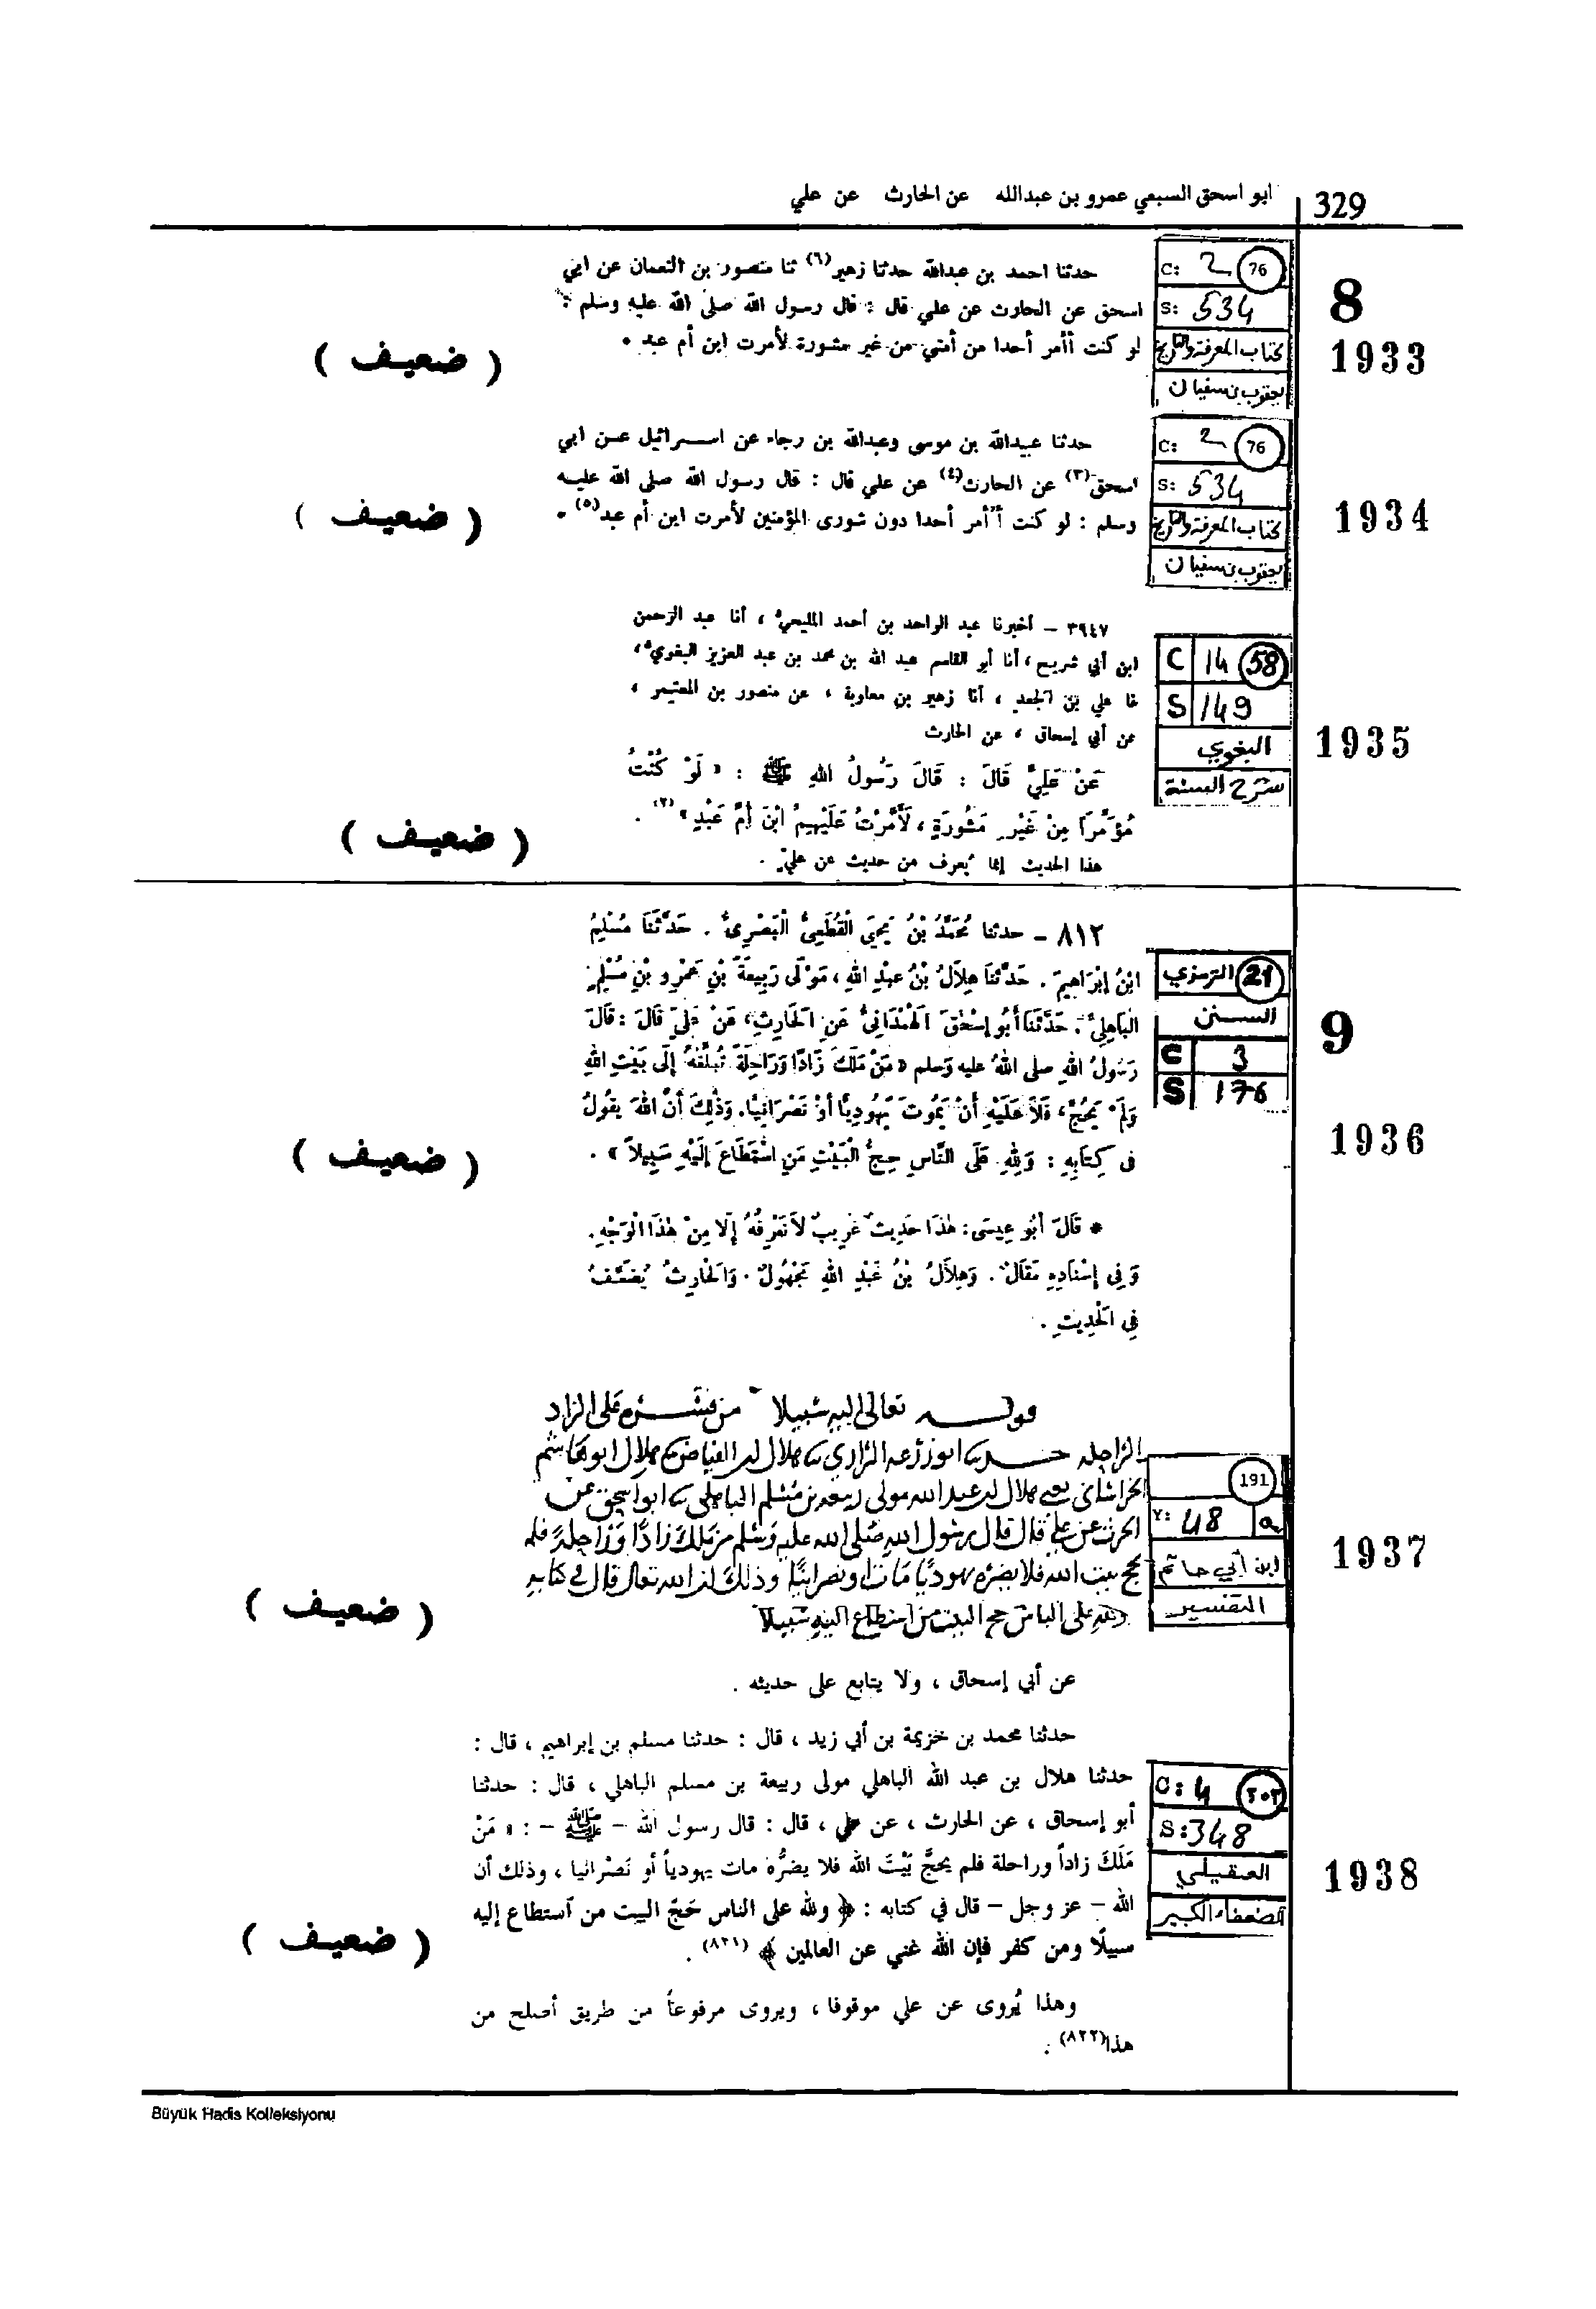 ابو اسحق السبعي عمرو بن عبدالله عن الحارث عن علي
329
حدثنا احمد بن عبدالله حدثنا زهير(٦) ثنا منصور بن النعمان عن ابي
اسحق عن الحارث عن علي قال : قال رسول الله صلى الله عليه وسلم :
لو كنت أأمر أحدا من أمتي من غير مشورة لأمرت ابن أم عبد .
( ضعيف )
C: 2 76
S: 534
كتاب المعرفة والتاريخ
يعقوب بن سفيان
8
1933
حدثنا عبيدالله بن موسى وعبدالله بن رجاء عن اسرائيل عن ابي
اسحق(٣) عن الحارث(٤) عن علي قال : قال رسول الله صلى الله عليه
وسلم : لو كنت أأمر أحدا دون شورى المؤمنين لأمرت ابن أم عبد(٥) .
( ضعيف )
C: 2 76
S: 534
كتاب المعرفة والتاريخ
يعقوب بن سفيان
1934
٣٩٤٧ – أخبرنا عبد الواحد بن أحمد المليحي ، أنا عبد الرحمن
ابن أبي شريح ، أنا أبو القاسم عبد الله بن محمد بن عبد العزيز البغوي ،
نا علي بن الجعد ، أنا زهير بن معاوية ، عن منصور بن المعتمر ،
عن أبي إسحاق ، عن الحارث
عَنْ عَلِيٍّ قَالَ : قَالَ رَسُولُ اللهِ ﷺ : « لَوْ كُنْتُ
مُؤَمِّرًا مِنْ غَيْرِ مَشُورَةٍ ، لَأَمَّرْتُ عَلَيْهِمُ ابْنَ أُمِّ عَبْدٍ »(٢) .
هذا الحديث إنما يُعرف من حديث عن علي .
( ضعيف )
C 14 58
S 149
البغوي
شرح السنة
1935
٨١٢ – حدثنا مُحَمَّدُ بْنُ يَحْيَى الْقُطَعِيُّ الْبَصْرِيُّ . حَدَّثَنَا مُسْلِمُ
ابْنُ إِبْرَاهِيمَ . حَدَّثَنَا هِلَالُ بْنُ عَبْدِ اللهِ ، مَوْلَى رَبِيعَةَ بْنِ عَمْرِو بْنِ مُسْلِمٍ
الْبَاهِلِيِّ . حَدَّثَنَا أَبُو إِسْحٰقَ الْهَمْدَانِيُّ عَنِ الْحَارِثِ ، عَنْ عَلِيٍّ قَالَ : قَالَ
رَسُولُ اللهِ صلى اللهُ عليه وَسلم « مَنْ مَلَكَ زَادًا وَرَاحِلَةً تُبَلِّغُهُ إِلَى بَيْتِ اللهِ
وَلَمْ يَحُجَّ ، فَلَا عَلَيْهِ أَنْ يَمُوتَ يَهُودِيًّا أَوْ نَصْرَانِيًّا . وَذٰلِكَ أَنَّ اللهَ يَقُولُ
فى كِتَابِهِ : وَلِلهِ عَلَى النَّاسِ حِجُّ الْبَيْتِ مَنِ اسْتَطَاعَ إِلَيْهِ سَبِيلًا » .
( ضعيف )
* قَالَ أَبُو عِيسَى : هٰذَا حَدِيثٌ غَرِيبٌ لَا نَعْرِفُهُ إِلَّا مِنْ هٰذَا الْوَجْهِ .
وَفِى إِسْنَادِهِ مَقَالٌ . وَهِلَالُ بْنُ عَبْدِ اللهِ مَجْهُولٌ . وَالْحَارِثُ يُضَعَّفُ
فِى الْحَدِيثِ .
الترمذي 21
السنن
C 3
S 176
9
1936
قوله تعالى اليه سبيلا من فسره على الزاد
والراحلة حدثنا ابو زرعه الرازي ثنا هلال بن الفياض ثنا هلال ابو هاشم
الخراساني يعني هلال بن عبد الله مولى ربيعه بن مسلم الباهلي ثنا ابو اسحق عن
الحرث عن علي قال قال رسول الله صلى الله عليه وسلم من ملك زادًا وراحلة فلم
يحج بيت الله فلا يضره يهوديًا مات او نصرانيًا وذلك ان الله تعالى قال في كتابه
ولله على الناس حج البيت من استطاع اليه سبيلا
( ضعيف )
191
Y: 48 a
ابن أبي حاتم
التفسير
1937
عن أبي إسحاق ، ولا يتابع على حديثه .
حدثنا محمد بن خزيمة بن أبي زيد ، قال : حدثنا مسلم بن إبراهيم ، قال :
حدثنا هلال بن عبد الله الباهلي مولى ربيعة بن مسلم الباهلي ، قال : حدثنا
أبو إسحاق ، عن الحارث ، عن علي ، قال : قال رسول الله – ﷺ – : « مَنْ
مَلَكَ زاداً وراحلة فلم يحجَّ بَيْتَ الله فلا يضرُّه مات يهودياً أو نَصْرانيا ، وذلك أن
الله – عز وجل – قال في كتابه : ﴿ ولله على الناس حَجّ البيت من آستطاع إليه
سبيلًا ومن كفر فإن الله غني عن العالمين ﴾ (٨٢١) .
( ضعيف )
وهذا يُروى عن علي موقوفا ، ويروى مرفوعاً من طريق أصلح من
هذا(٨٢٢) .
C: 4 ٢٠٢
S: 348
العقيلي
الضعفاء الكبير
1938
Büyük Hadis Kolleksiyonu